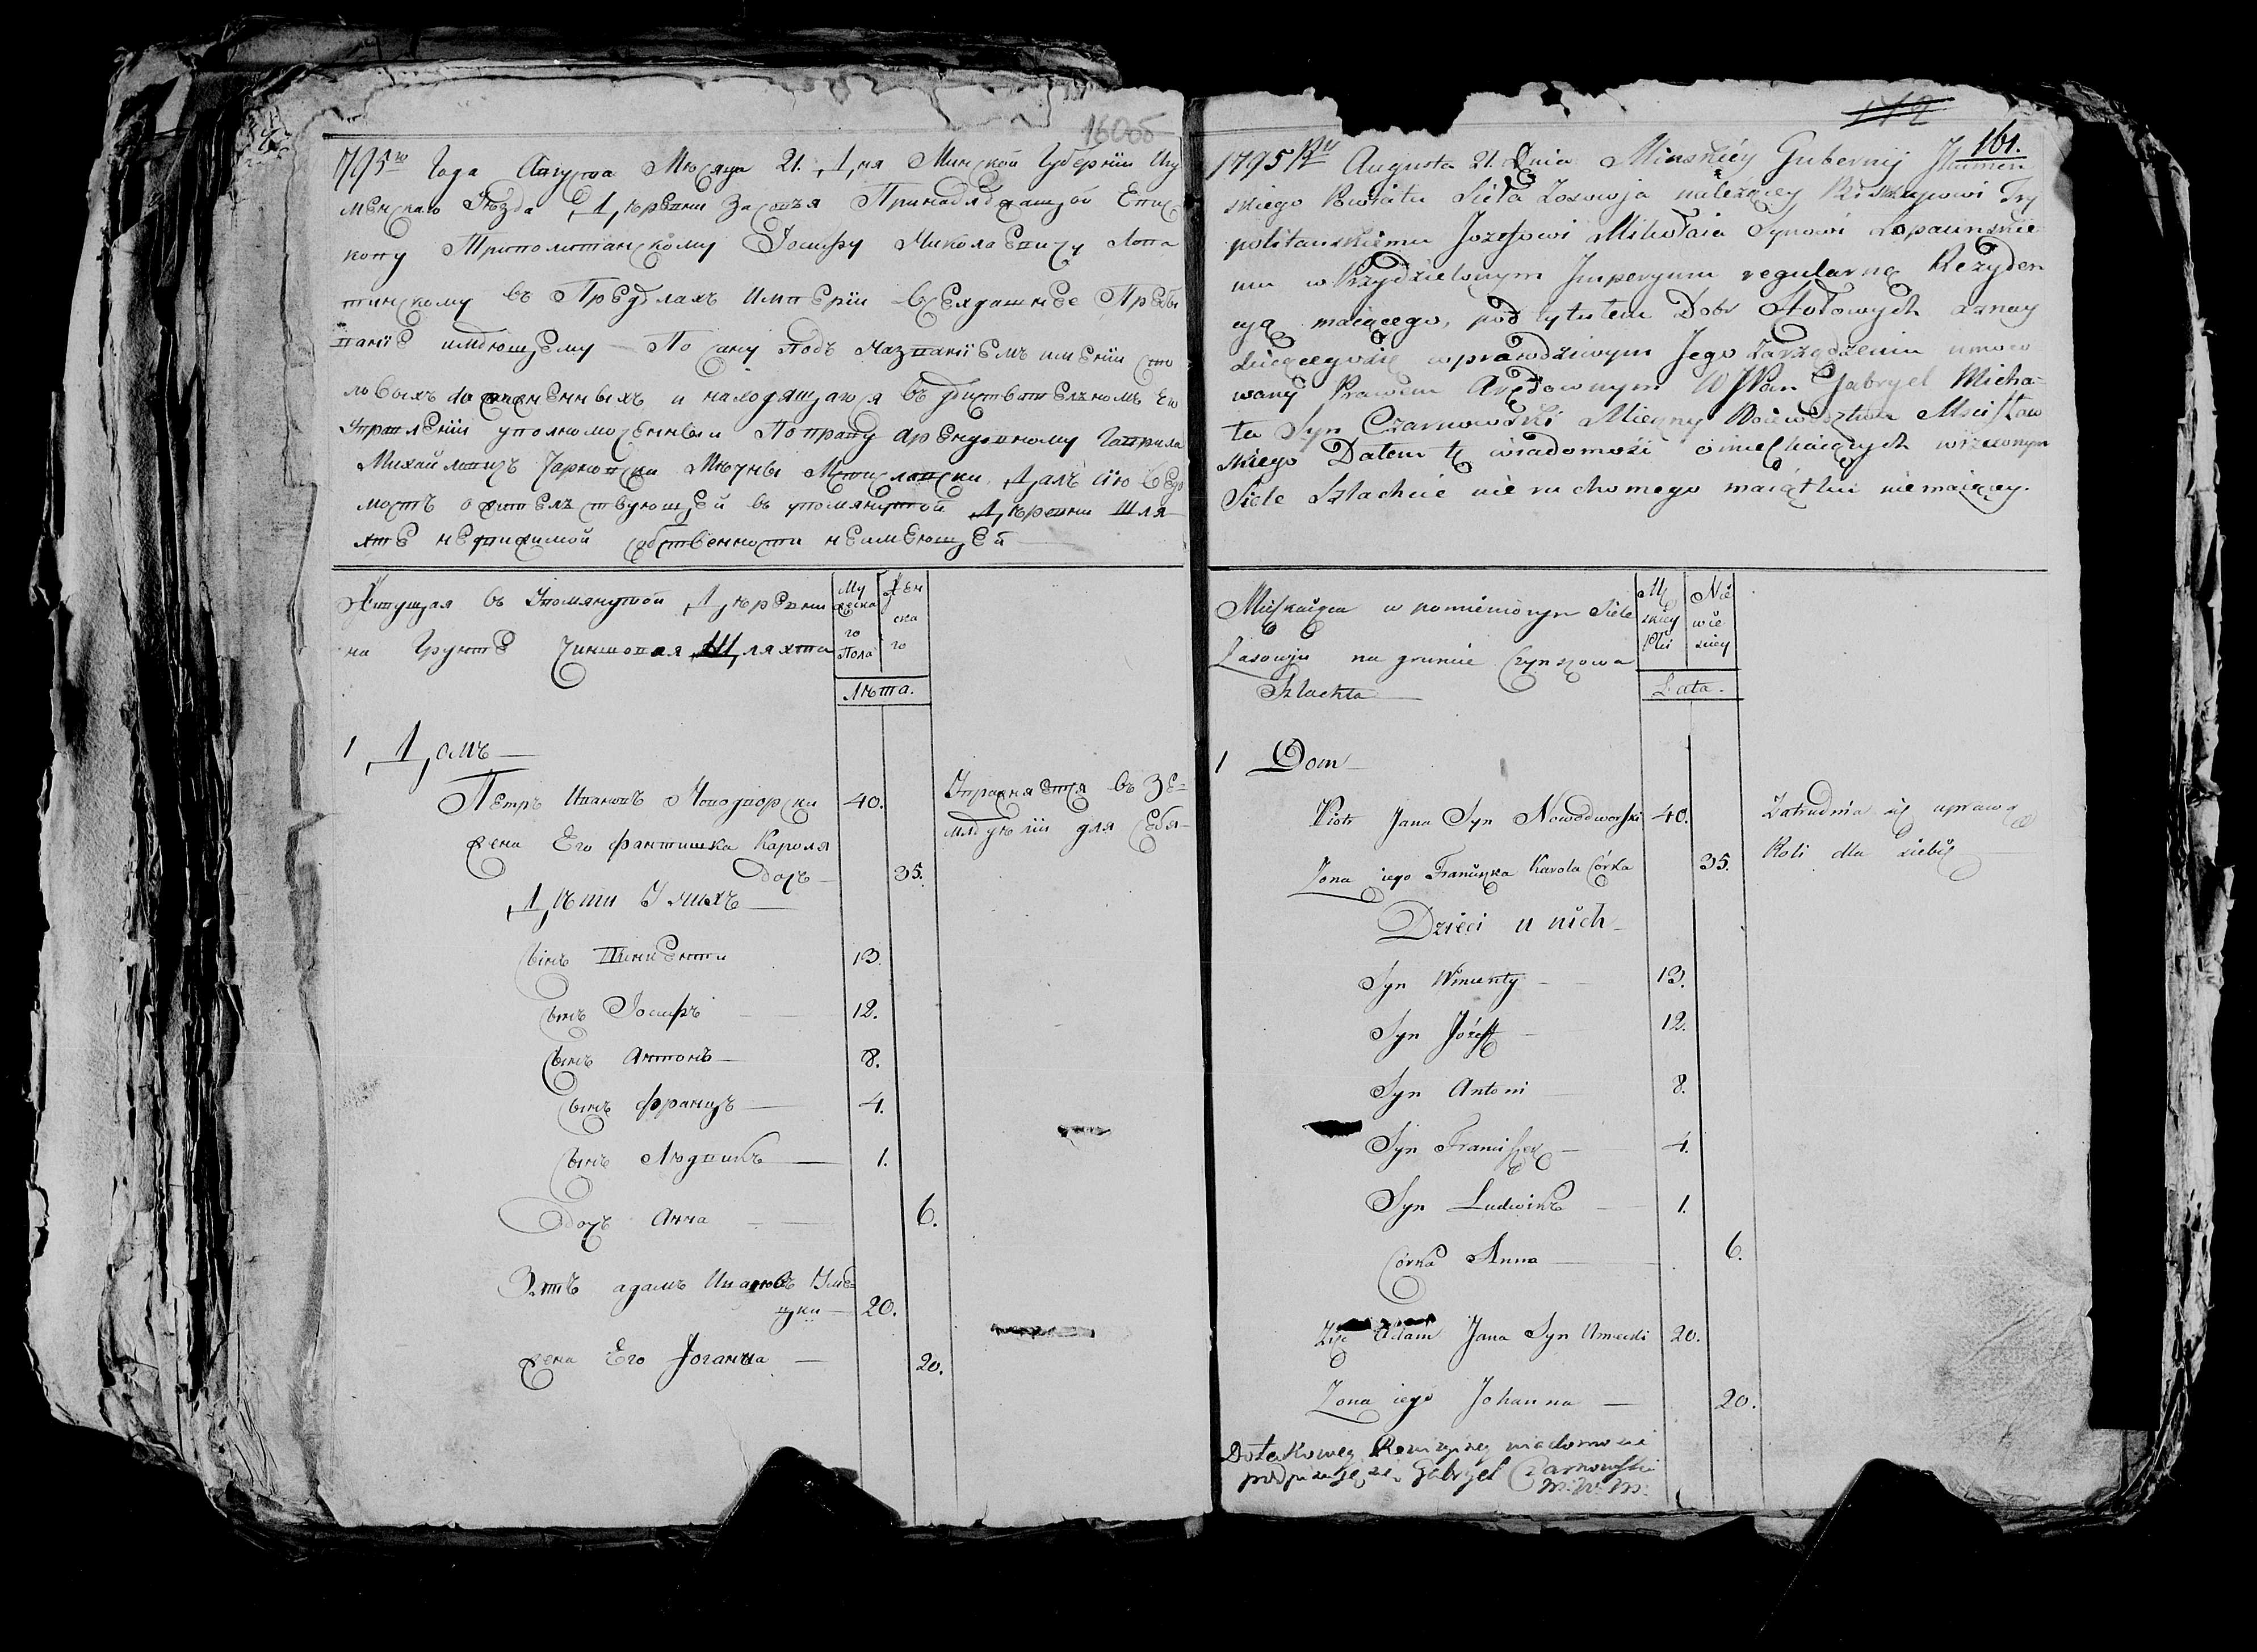 160об
1795го Года Августа Месяца 21. Дня Минской Губернiи Игу
менскаго Уезда Деревни Принадлежащой Епис
копу Триполитанскому Iосифу Николаевичу Лопа
тинскому въ Пределахъ Имперiи всегдашнее Пребы
ванiе имеющему По подъ Названiемъ именiи сто
ловыхъ и находящагося въ действителномъ Его
Управленiи уполномоченный По праву арендовному Гаврила
Михайловичъ Чарновски Мечны Мстиславски. Далъ сiю ведо
мость о жителствующей въ упомянутой Деревни Шля
хте недвижимой собственности неимеющей
Живущая въ Упомянутой Деревни
на Грунте Чиншовая Шляхта
Му
жеска
го
Пола
Жен
ска
го
Лета.
1 Домъ
Петръ Ивановъ Новодворски 40. Упражняется въ Зе=
жена Его Францишка Кароля мледелiи для себя
дочь 35.
Дети У нихъ
сынъ Винценти 13.
сынъ Iосифъ 12.
сынъ Антонъ 8.
сынъ Францъ 4.
сынъ Людвикъ 1.
дочь Анна 6.
Зять адамъ Ивановъ Уме
цки 20.
жена Его Iоганна 20.
172
161.
1795 Ru Augusta 21. Dnia Minskiey Gubernij Ihumen
skiego Powiatu Sieła należącey Biskupowi Try
politanskiemu Jozefowi Mikołaia Synowi Łopacinskie
mu w Imperyum regularną Rezyden
cyą maiącego, pod tytułem Dobr Stołowych
w prawdziwym Jego Zarządzeniu umoco
wany Prawem Arędownym W JPan Gabryel Micha=
ła Syn Czarnowski Mieczny Woiewodztwa Mscisław
skiego Dałem tę wiadomość o mieszkaiących wrzeconym
Siele Szlachcie nie ruchomego maiątku niemaiącey.
Mieszkaiąca w pomienionym Siele
na gruncie Czynszowa
Szlachta
Mę
skiey
Płci
Nie
wie
sciey
Lata.
1 Dom
Piotr Jana Syn Nowodworski 40. Zatrudnia się uprawą
Zona iego Franciszka Karola Córka 35. Roli dla siebie
Dzieci u nich
Syn Wincenty 13.
Syn Józeff 12.
Syn Antoni 8.
Syn Franciszek 4.
Syn Ludwik 1.
Córka Anna 6.
Zięć Adam Jana Syn Umecki 20.
Zona iego Johanna 20.
Do takowey Rewizyiney wiadomosci
podpisuię się Gabryel Czarnowski
m: w: m: